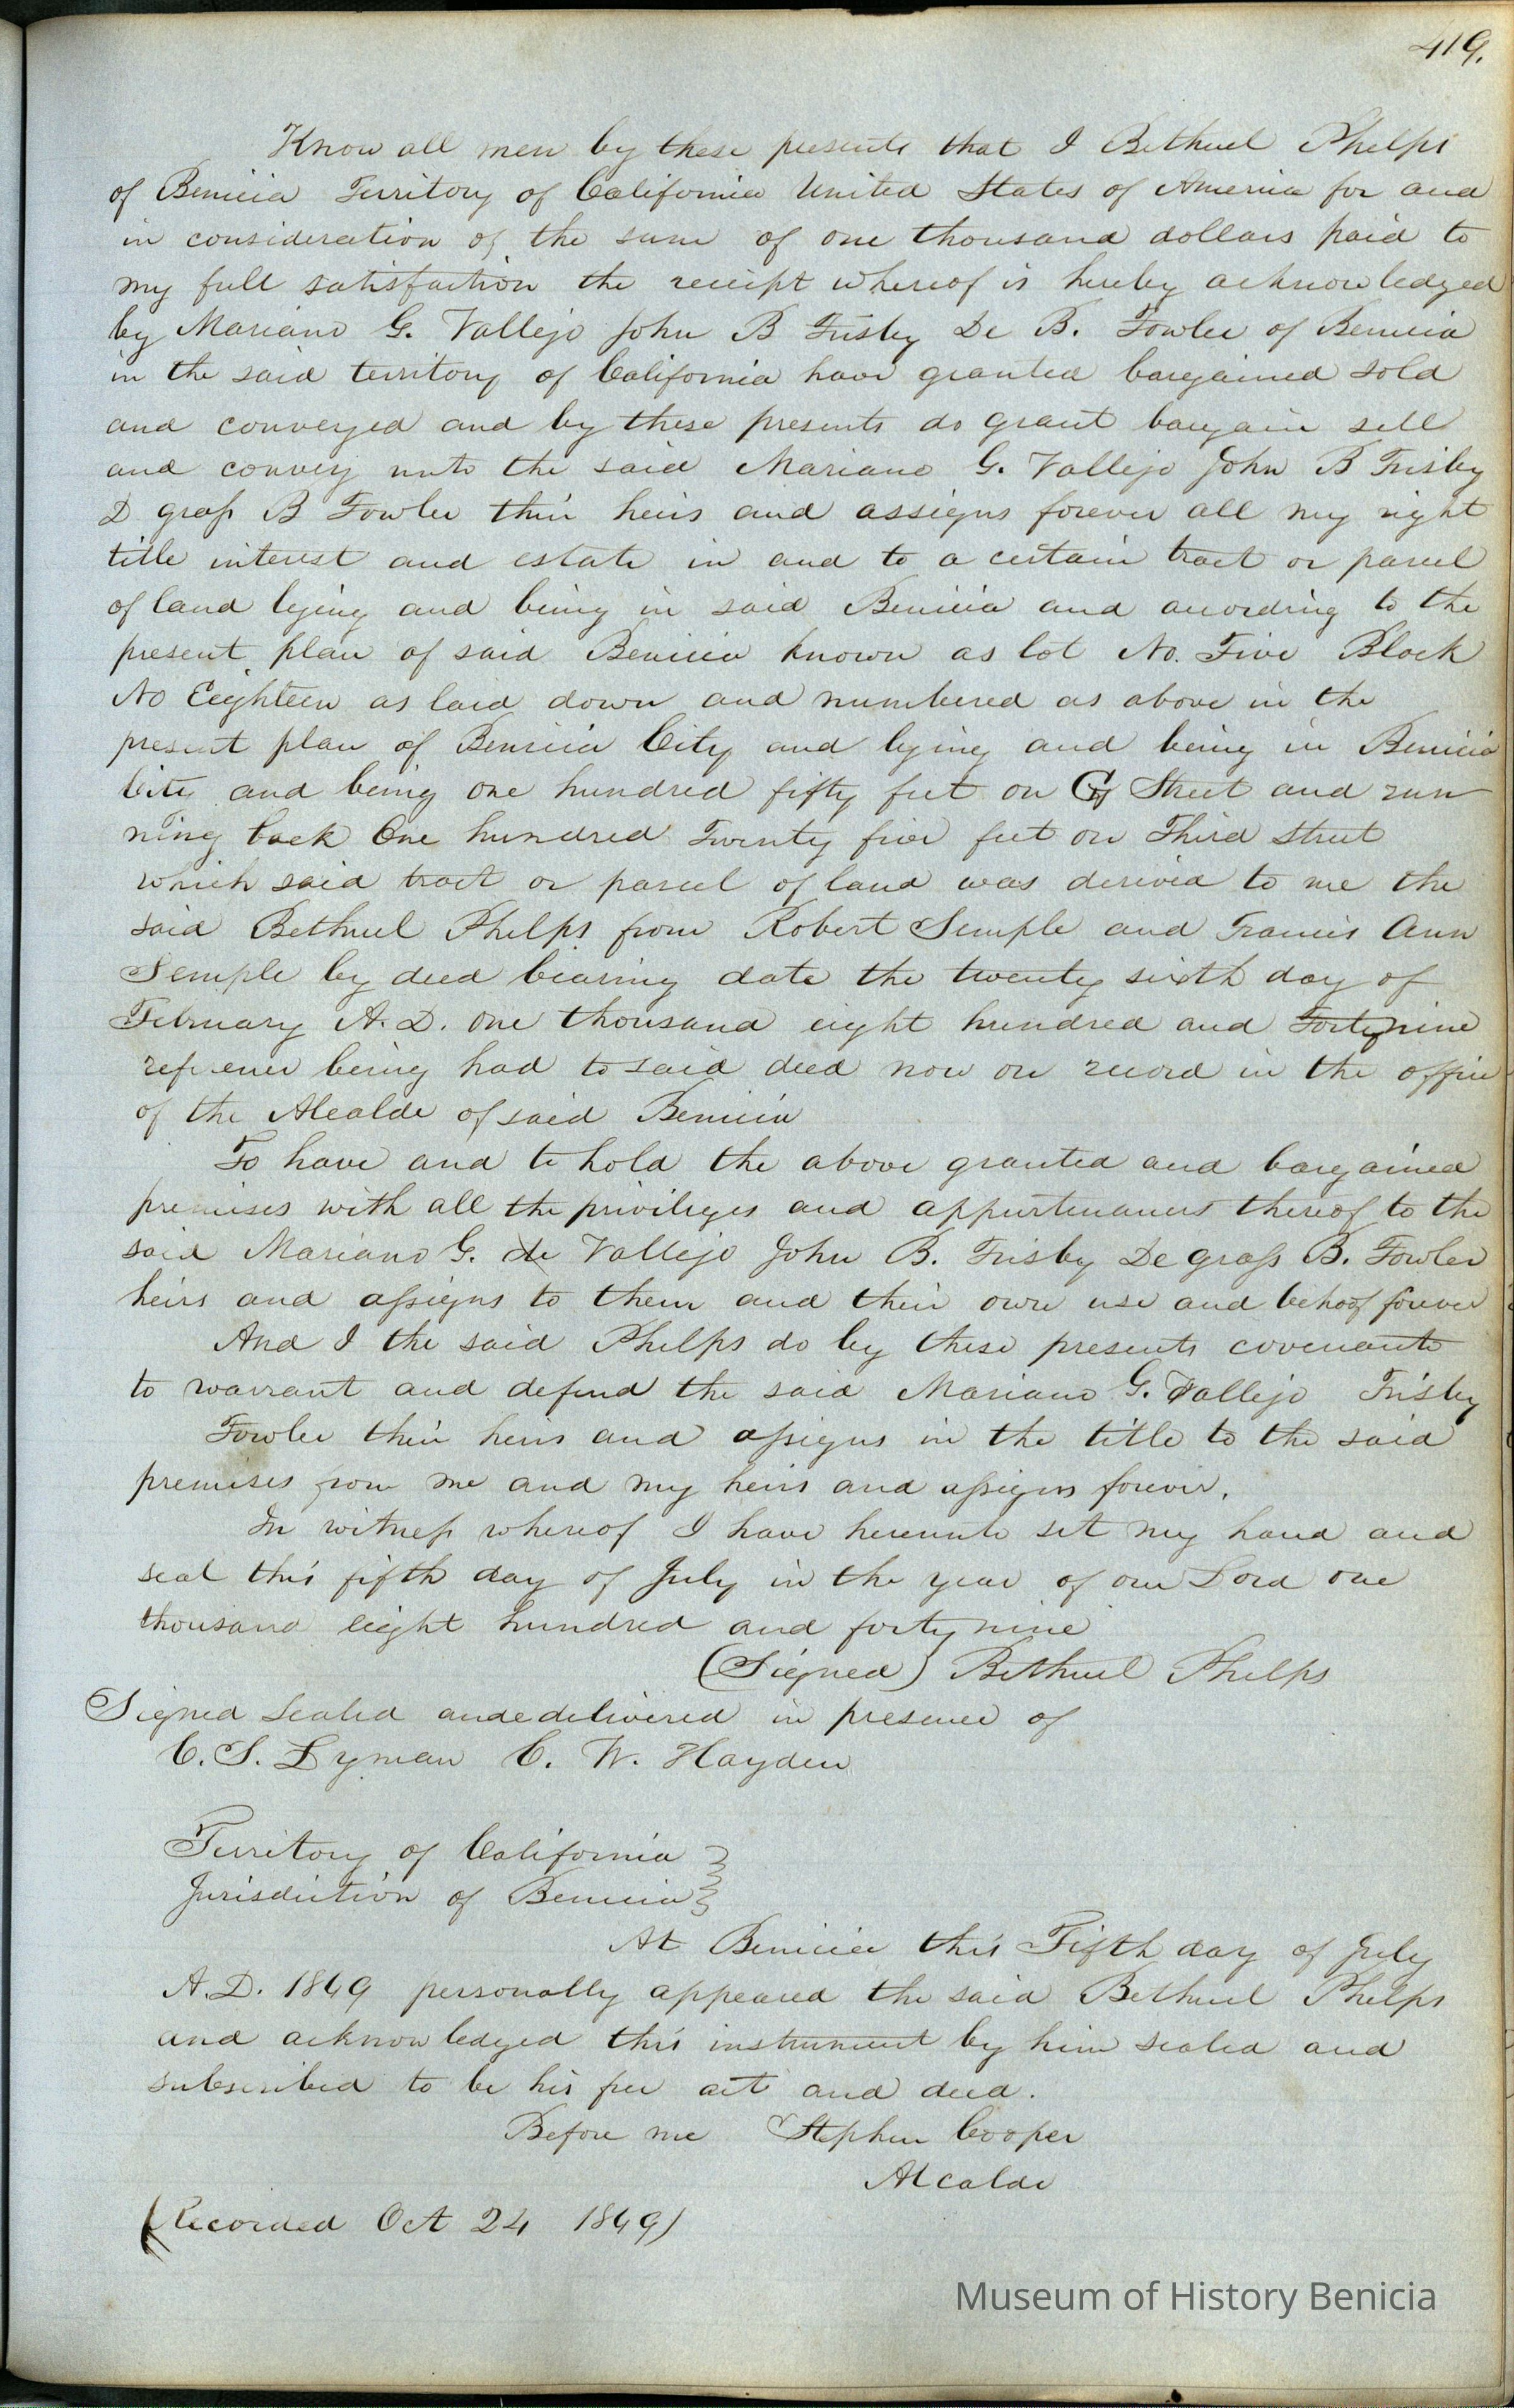 419.
Know all men by these presents that I Bethuel Phelps
of Benicia Territory of California United States of America for and
in consideration of the sum of one thousand dollars paid to
my full satisfaction the receipt whereof is hereby acknowledged
by Mariano G. Vallejo John B Frisby De B. Fowler of Benicia
in the said territory of California have granted bargained sold
and conveyed and by these presents do grant bargain sell
and convey unto the said Mariano G. Vallejo John B Frisby
D grass B Fowler their heirs and assigns forever all my right
title interest and estate in and to a certain tract or parcel
of land lying and being in said Benicia and according to the
present plan of said Benicia known as lot No. Five Block
No Eighteen as laid down and numbered as above in the
present plan of Benicia City and lying and being in Benicia
City and being one hundred fifty feet on G Street and run
ning back One hundred Twenty five feet on Third Street
which said tract or parcel of land was derived to me the
said Bethuel Phelps from Robert Semple and Francis Ann
Semple by deed bearing date the twenty sixth day of
February A.D. one thousand eight hundred and Forty nine
reference being had to said deed now on record in the office
of the Alcalde of said Benicia
To have and to hold the above granted and bargained
premises with all the privileges and appurtenances thereof to the
said Mariano G. de Vallejo John B. Frisby De grass B. Fowler
heirs and assigns to them and their own use and behoof forever
And I the said Phelps do by these presents covenants
to warrant and defend the said Mariano G. Vallejo Frisby
Fowler their heirs and assigns in the title to the said
premises from me and my heirs and assigns forever.
In witness whereof I have hereunto set my hand and
seal this fifth day of July in the year of our Lord one
thousand eight hundred and forty nine
(Signed) Bethuel Phelps
Signed Sealed and delivered in presence of
C. S. Lyman C. W. Hayden
Territory of California }
Jurisdiction of Benicia }
At Benicia this Fifth day of July
A.D. 1849 personally appeared the said Bethuel Phelps
and acknowledged this instrument by him sealed and
subscribed to be his free act and deed.
Before me Stephen Cooper
Alcalde
(Recorded Oct 24 1849)
Museum of History Benicia